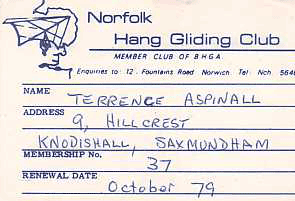 Norfolk
Hang Gliding Club
MEMBER CLUB OF B.H.G.A.
Enquiries to: 12, Fountains Road Norwich. Tel. Nch. 564
NAME TERRENCE ASPINALL
ADDRESS 9, HILLCREST
KNODISHALL, SAXMUNDHAM
MEMBERSHIP No. 37
RENEWAL DATE October 79